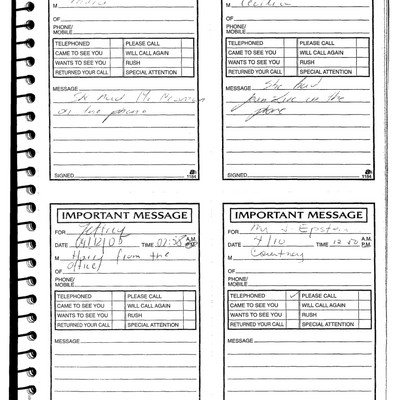 M
OF
PHONE/
MOBILE
TELEPHONED PLEASE CALL
CAME TO SEE YOU WILL CALL AGAIN
WANTS TO SEE YOU RUSH
RETURNED YOUR CALL SPECIAL ATTENTION
MESSAGE She had Ms
on the phone
SIGNED
1184
M
OF
PHONE/
MOBILE
TELEPHONED PLEASE CALL
CAME TO SEE YOU WILL CALL AGAIN
WANTS TO SEE YOU RUSH
RETURNED YOUR CALL SPECIAL ATTENTION
MESSAGE She had
on the
phone
SIGNED
1184
IMPORTANT MESSAGE
FOR Jeffrey
DATE TIME A.M.
P.M.
M from the
OF office
PHONE/
MOBILE
TELEPHONED PLEASE CALL
CAME TO SEE YOU WILL CALL AGAIN
WANTS TO SEE YOU RUSH
RETURNED YOUR CALL SPECIAL ATTENTION
MESSAGE
IMPORTANT MESSAGE
FOR Mr J. Epstein
DATE 4/10 TIME 12 50 A.M.
P.M.
M Courtney
OF
PHONE/
MOBILE
TELEPHONED ✓ PLEASE CALL
CAME TO SEE YOU WILL CALL AGAIN
WANTS TO SEE YOU RUSH
RETURNED YOUR CALL SPECIAL ATTENTION
MESSAGE